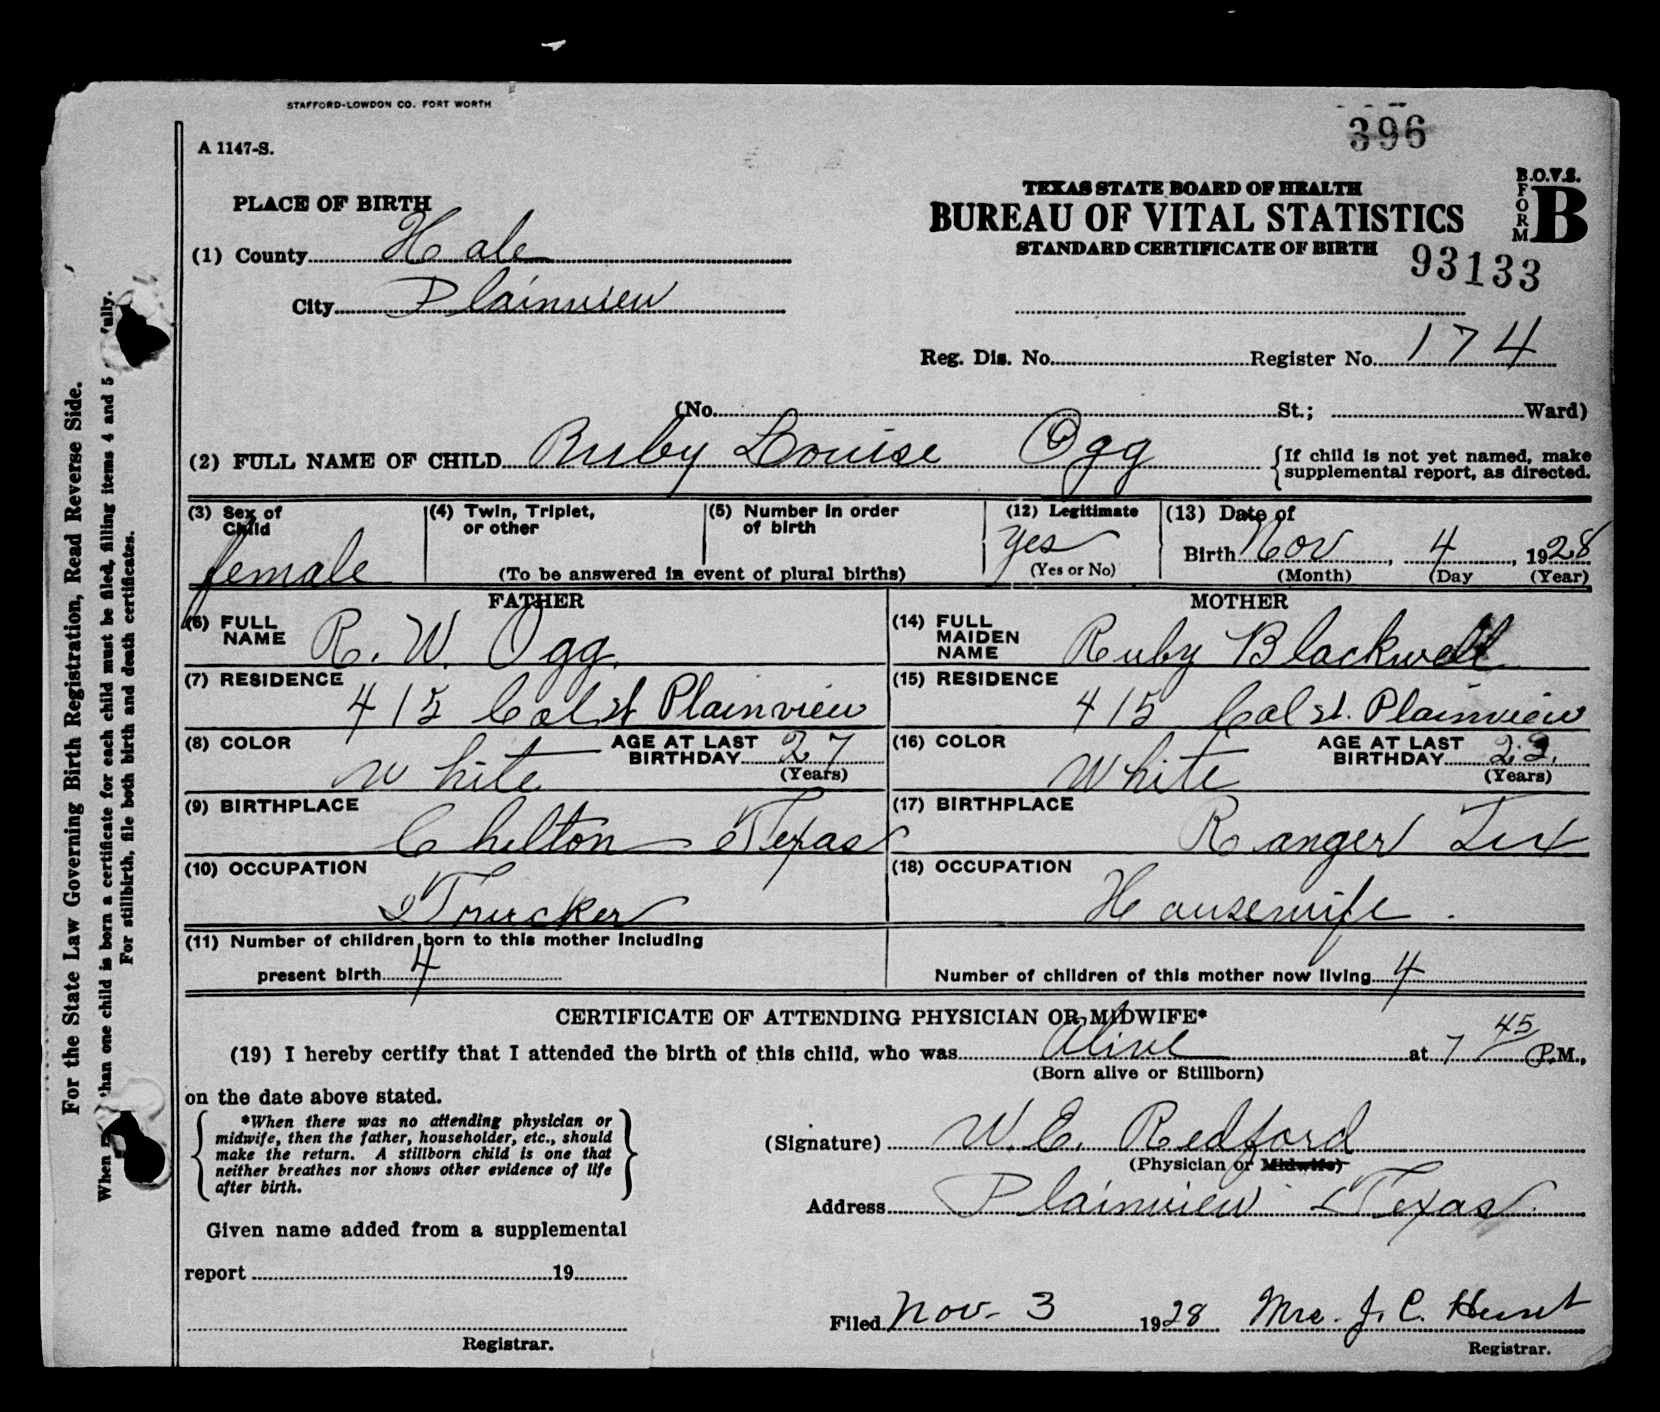 STAFFORD-LOWDON CO. FORT WORTH
396
A 1147-S.
B.O.V.S.
FORM B
TEXAS STATE BOARD OF HEALTH
PLACE OF BIRTH
BUREAU OF VITAL STATISTICS
STANDARD CERTIFICATE OF BIRTH
(1) County Hale
93133
City Plainview
Reg. Dis. No. Register No. 174
(No. St.; Ward)
(2) FULL NAME OF CHILD Ruby Louise Ogg
{If child is not yet named, make
supplemental report, as directed.
(3) Sex of Child female
(4) Twin, Triplet, or other
(5) Number in order of birth
(To be answered in event of plural births)
(12) Legitimate yes
(Yes or No)
(13) Date of
Birth Nov, 4, 1928
(Month) (Day (Year)
FATHER
(6) FULL NAME R. W. Ogg.
(7) RESIDENCE 415 Cal st Plainview
(8) COLOR White AGE AT LAST BIRTHDAY 27
(Years)
(9) BIRTHPLACE Chilton Texas
(10) OCCUPATION Trucker
(11) Number of children born to this mother including
present birth 4
MOTHER
(14) FULL MAIDEN NAME Ruby Blackwell
(15) RESIDENCE 415 Cal st. Plainview
(16) COLOR White AGE AT LAST BIRTHDAY
(Years)
(17) BIRTHPLACE Ranger Tex
(18) OCCUPATION Housewife.
Number of children of this mother now living 4
CERTIFICATE OF ATTENDING PHYSICIAN OR MIDWIFE*
(19) I hereby certify that I attended the birth of this child, who was Alive at 7 45 P.M.,
(Born alive or Stillborn)
on the date above stated.
{*When there was no attending physician or
midwife, then the father, householder, etc., should
make the return. A stillborn child is one that
neither breathes nor shows other evidence of life
after birth.}
(Signature) W. E. Redford
(Physician or Midwife)
Address Plainview Texas.
Given name added from a supplemental
report 19
Registrar.
Filed Nov- 3 1928 Mrs. J. C. Hunt
Registrar.
For the State Law Governing Birth Registration, Read Reverse Side.
When than one child is born a certificate for each child must be filed, filling items 4 and 5 fully.
For stillbirth, file both birth and death certificates.